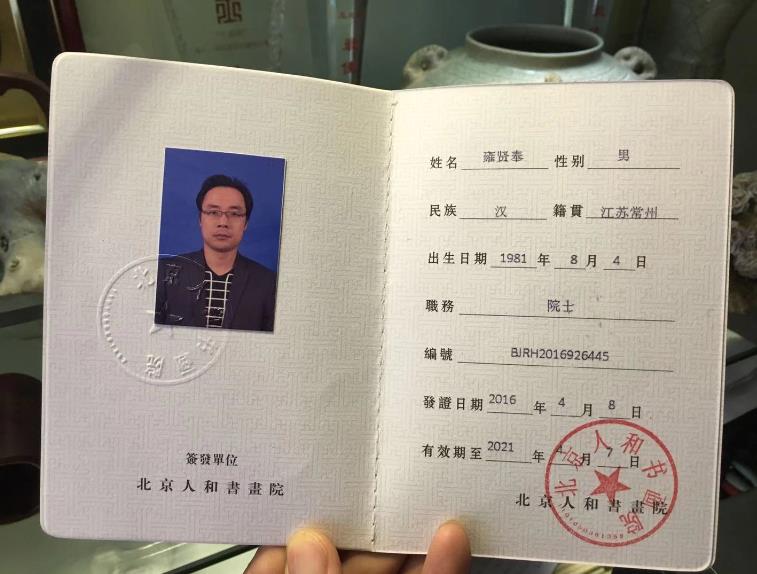 簽發單位
北京人和書畫院
姓名 雍贤奉 性别 男
民族 汉 籍貫 江苏常州
出生日期 1981 年 8 月 4 日
職務 院士
編號 BJRH2016926445
發證日期 2016 年 4 月 8 日
有效期至 2021 年 4 月 7 日
北京人和書畫院
北京人和书画院